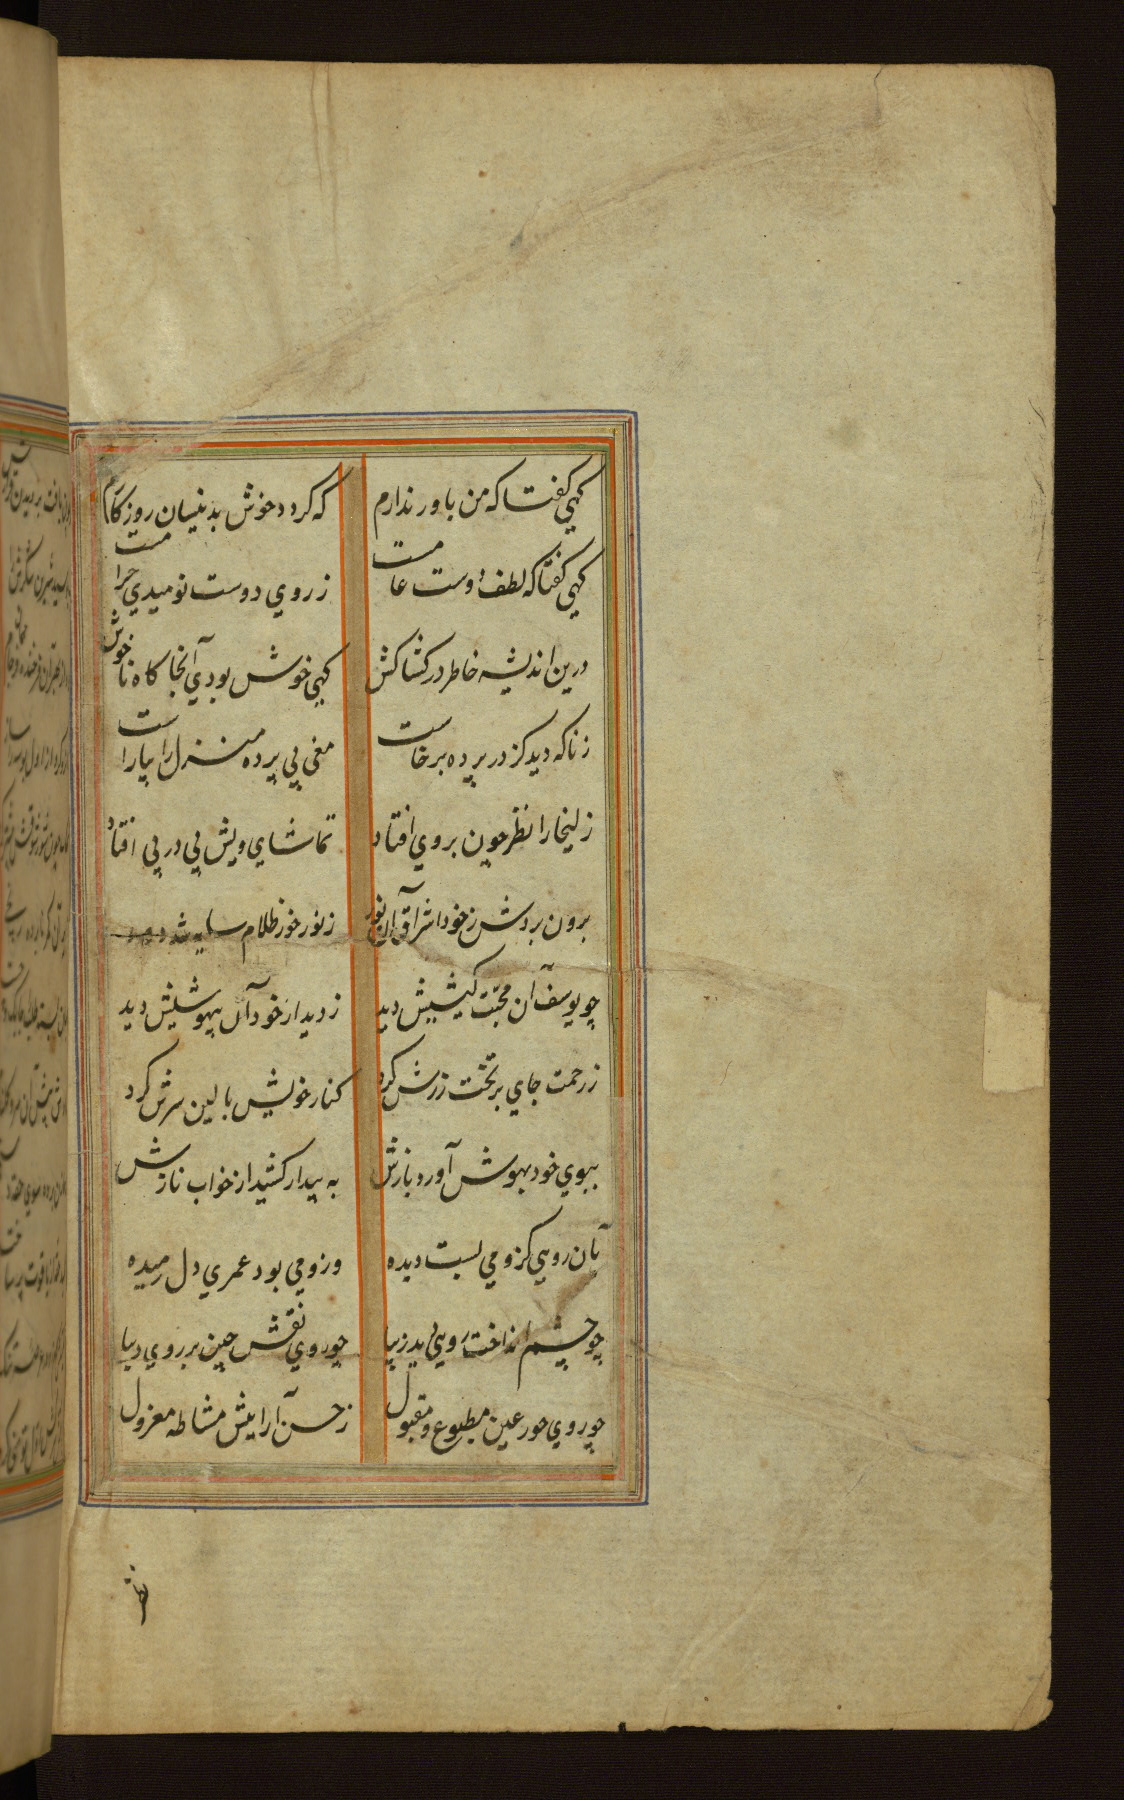 کهی کفتا که من باور ندارم که کردد خوش بدینسان روزکارم
کهی کفتا که لطف دوست عامست ز روی دوست نومیدی حرامست
درین اندیشه خاطر در کشاکش کهی خوش بودی آنجا کاه ناخوش
ز ناکه دید کز در پرده برخاست مهی بی پرده منزل را بیاراست
زلیخا را نظر چون بروی افتاد تماشای ویش پی در پی افتاد
برون بردش ز خود اشراق آن نور ز نور خور ظلام سایه شد دور
چو یوسف آن محبت کیشیش دید ز دیدار خود آن بیهوشیش دید
ز رحمت جای بر تخت زرش کرد کنار خویش بالین سرش کرد
ببوی خود بهوش آورد بازش به بیدار کشید از خواب نازش
بآن رویی کز و می بست دیده وزو می بود عمری دل رمیده
چو چشم انداخت رویی دید زیبا چو روی نقش چین بر روی دیبا
چو روی حور عین مطبوع و مقبول ز حسن آرایش مشاطه معزول
نظر